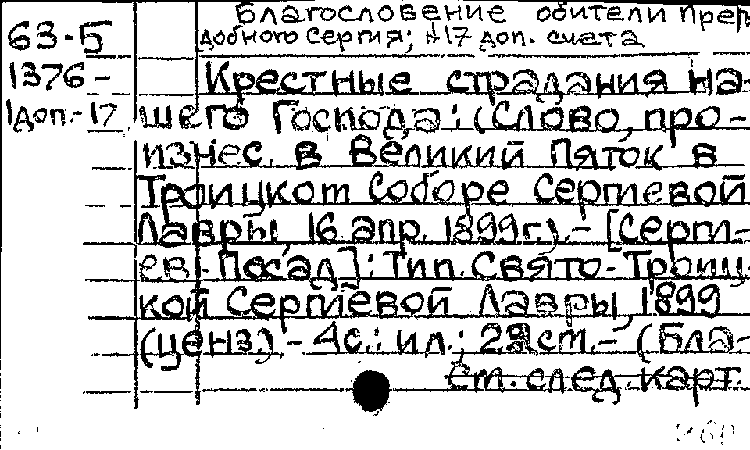 Благословение обители преп
63-5 добного Сергия; №17 доп. счета
1376- Крестные страдания на-
1доп.-17 шего Господа: (Слово, про-
изнес. в Великий Пяток в
Троицком Соборе Сергиевой
Лавры, 16 апр. 1899г.).- [Серги-
ев-Посад]: Тип. Свято-Троиц-
кой Сергиевой Лавры, 1899
(ценз.).- 4с.: ил.; 22см.- (Бла-
См. след. карт.